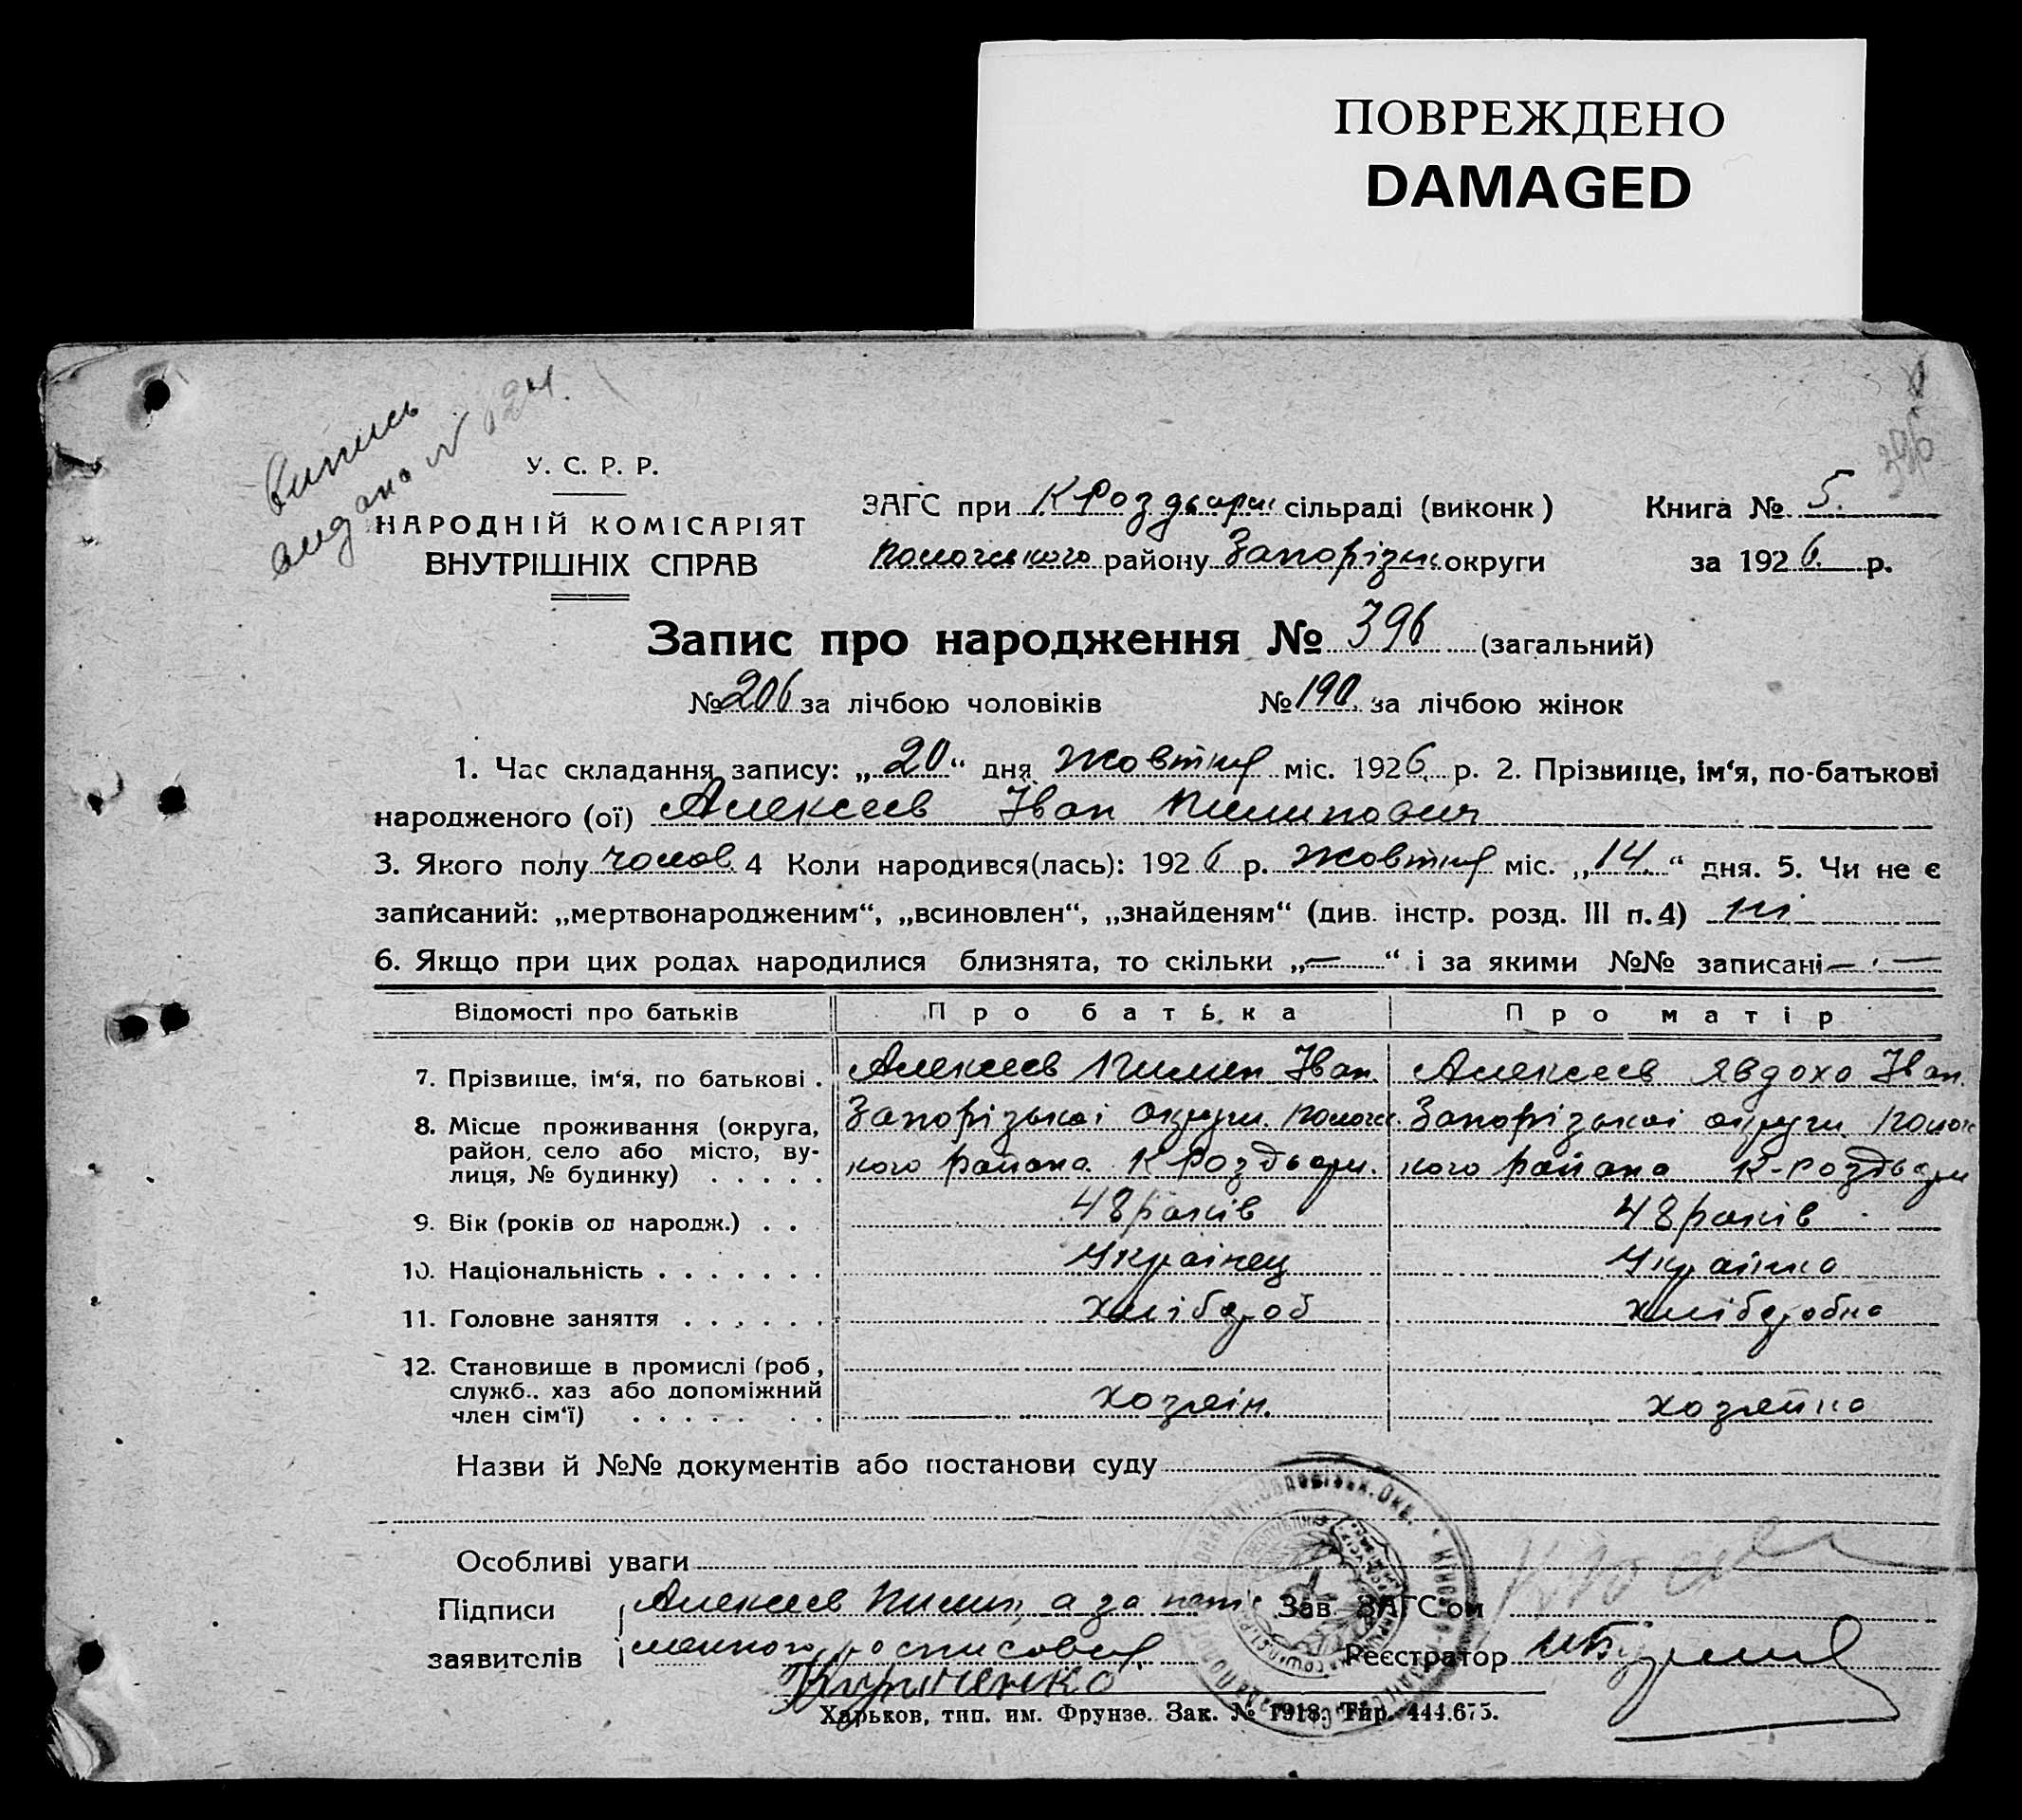 ПОВРЕЖДЕНО
DAMAGED
випись
видана № 124.
396
У. С. Р. Р.
НАРОДНІЙ КОМІСАРІЯТ
ВНУТРІШНІХ СПРАВ
ЗАГС при К Роздорн сільраді (виконк) Книга № 5.
Пологського району Запорізьк округи за 1926 р.
Запис про народження № 396 (загальний)
№ 206 за лічбою чоловіків № 190 за лічбою жінок
1. Час складання запису: „20“ дня жовтня міс. 1926 р. 2. Прізвище, ім‘я, по-батькові
народженого (ої) Алексеев Іван Пилипович
3. Якого полу чолов 4 Коли народився(лась): 1926 р. жовтня міс. „14“ дня. 5. Чи не є
записаний: „мертвонародженим“, „всиновлен“, „знайденям“ (див. інстр. розд. III п. 4) ні
6. Якщо при цих родах народилися близнята, то скільки „—“ і за якими №№ записані —
Відомості про батьків Про батька Про матір
7. Прізвище, ім‘я, по батькові . Алексеев Пилип Іван. Алексеев Явдоха Іван.
8. Місце проживання (округа, район, село або місто, вулиця, № будинку) . . . . . Запорізької округи Пологс Запорізької округи Полог
кого района К Роздори. кого района К-Роздори
9. Вік (років од народж.) . . 48 років 48 років
10. Національність . . . . . . . Українец Українка
11. Головне заняття . . . . . . хлібороб хліборобка
12. Становище в промислі (роб, служб.. хаз або допоміжний член сім‘ї) . . . . . . . хозяін. хозяйка
Назви й №№ документів або постанови суду
Особливі уваги
Підписи Алексеев Пилип, а за Зав. ЗАГС‘ом
заявителів росписовся Реєстратор
Кириченко
Харьков, тип. им. Фрунзе. Зак. № 1918. Тир. 444.675.